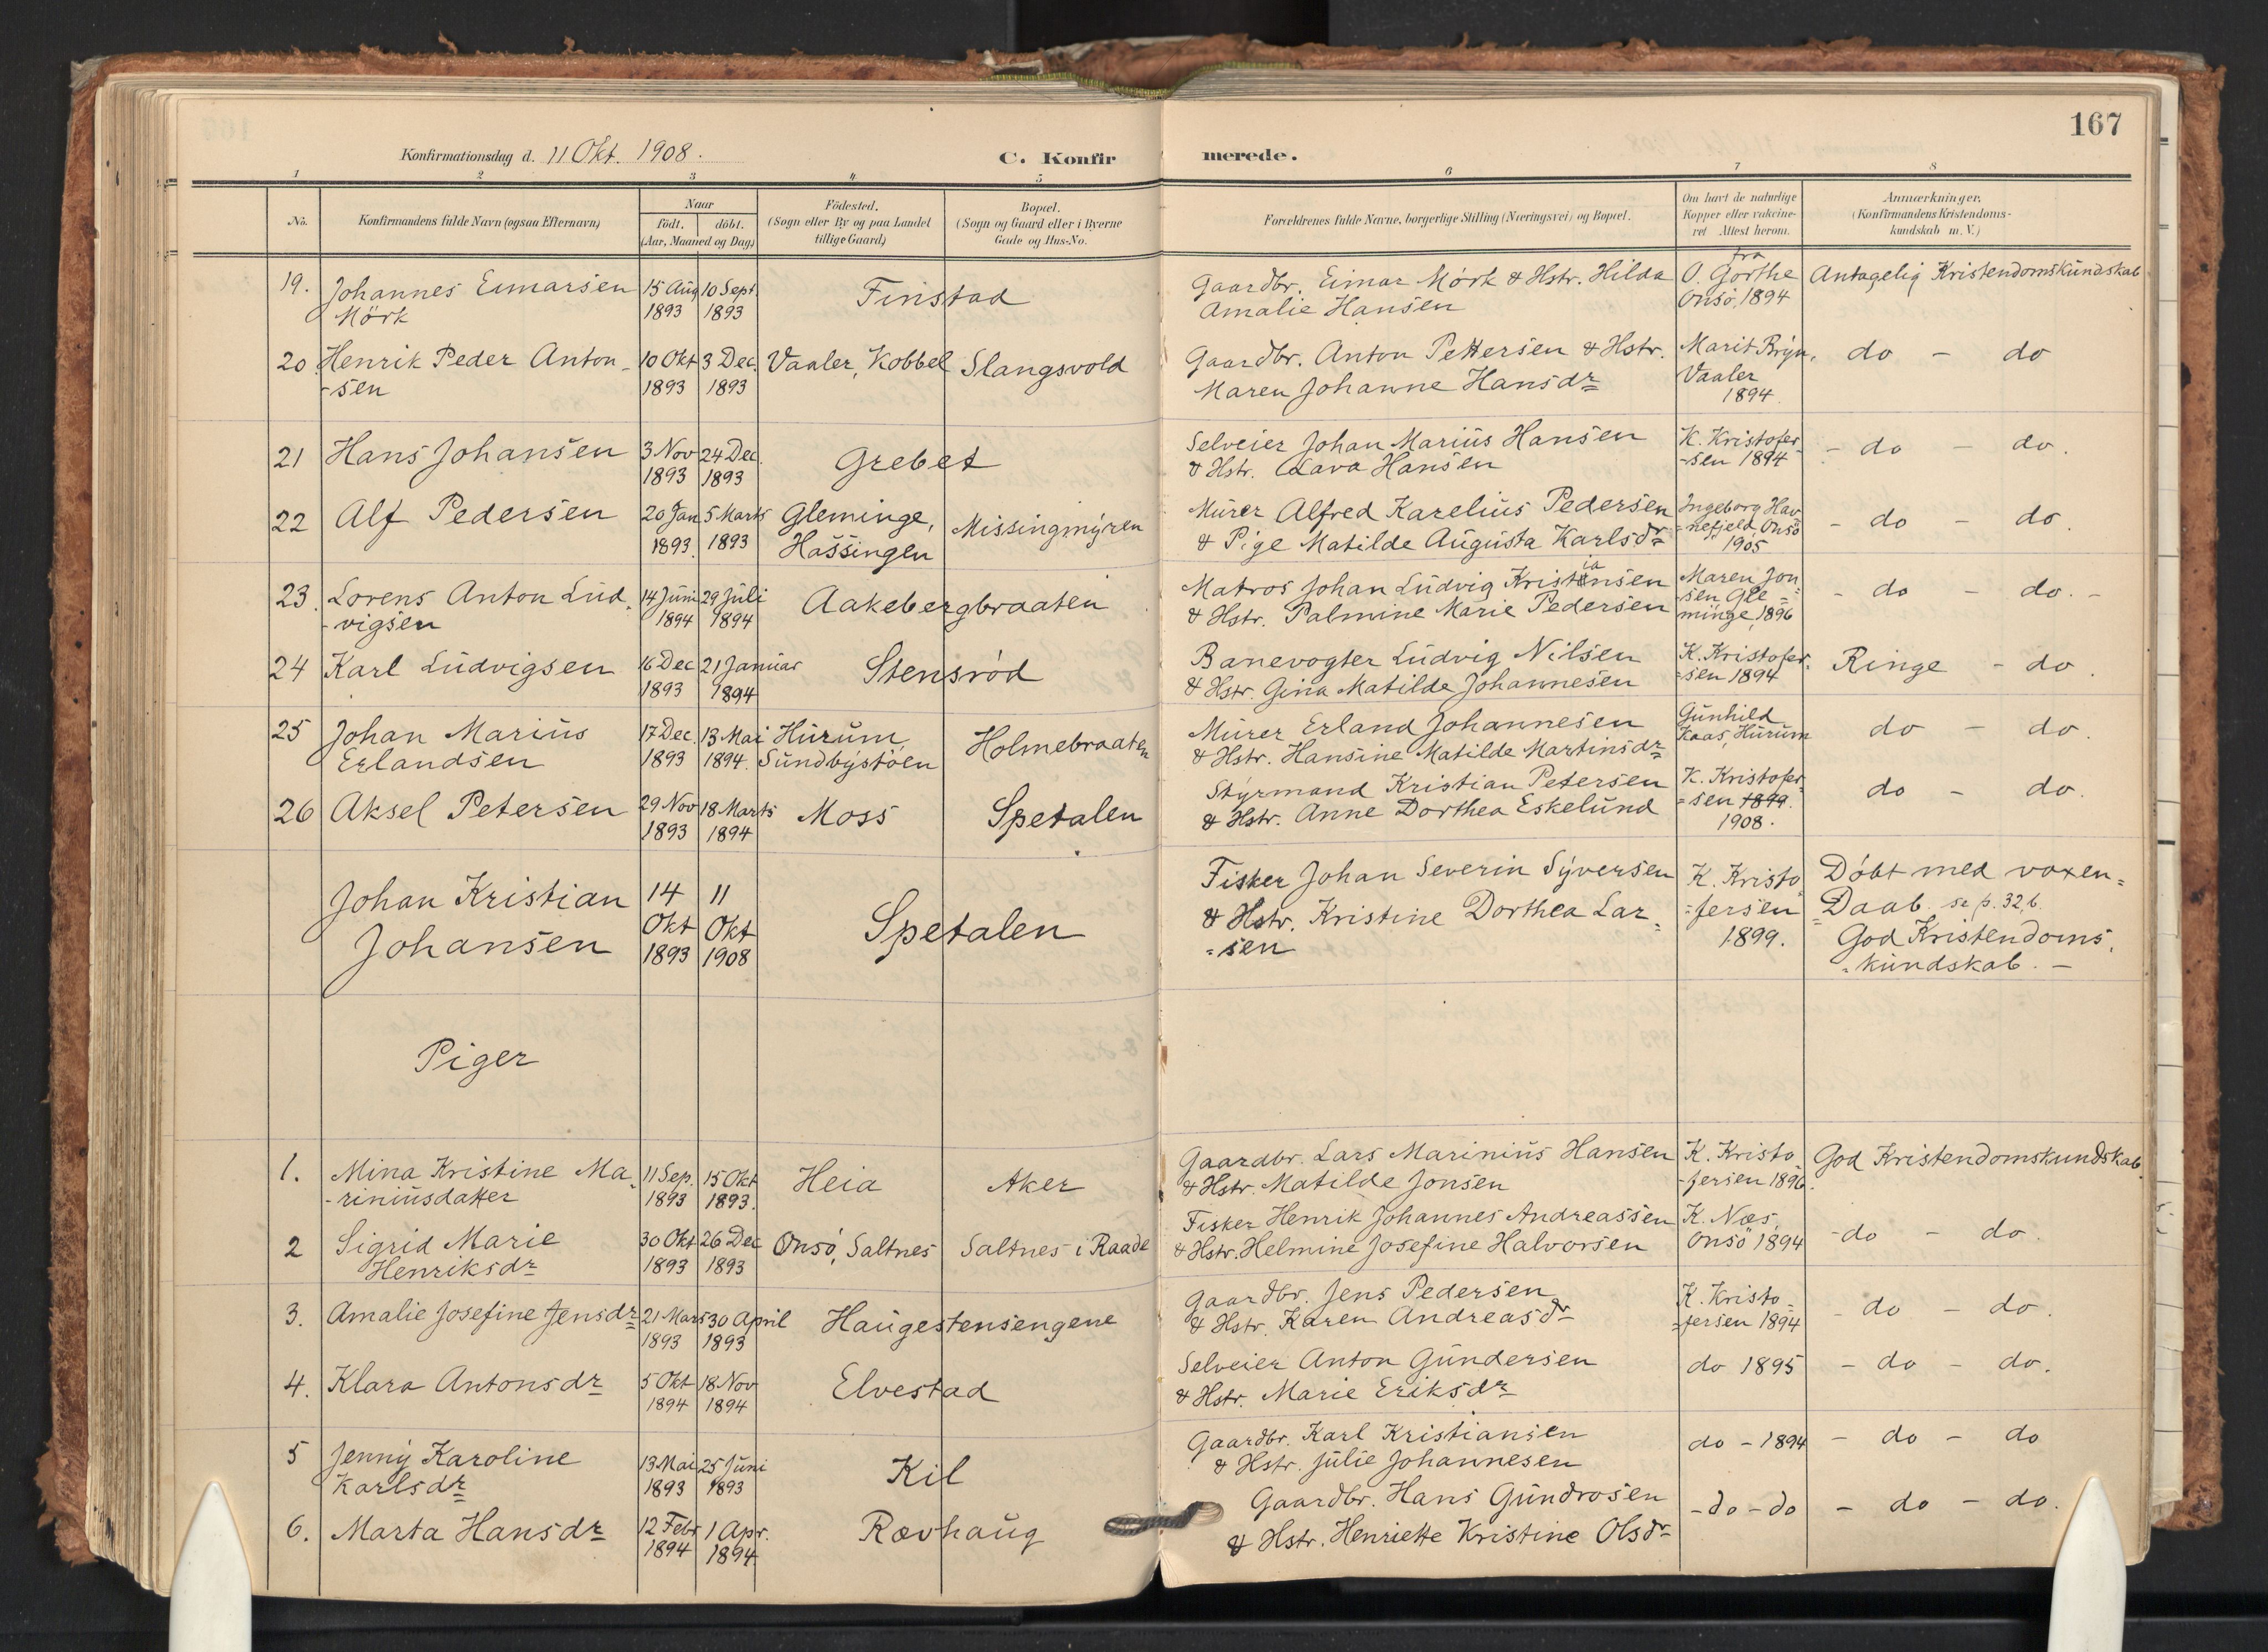 167
Konfirmationsdag d. 11 Okt. 1908.
C. Konfir merede.
1 2 3 4 5 6 7 8
No.
Konfirmandens fulde Navn (ogsaa Efternavn)
Naar
födt. döbt.
(Aar, Maaned og Dag)
Födested.
(Sogn eller By og paa Landet
tillige Gaard)
Bopæl.
(Sogn og Gaard eller i Byerne
Gade og Hus-No.
Forældrenes fulde Navne, borgerlige Stilling (Næringsvei) og Bopæl.
Om havt de naturlige
Kopper eller vakcine-
ret Attest herom.
Anmærkninger.
(Konfirmandens Kristendoms-
kundskab m. V.)
19. Johannes Eimarsen 15 Aug 10 Sept. Finstad Gaardbr. Eimar Mörk & Hstr. Hilda fra O. Gorthe Antagelig Kristendomskundskab
Mörk 1893 1893 Amalie Hansen Onsö, 1894
20. Henrik Peder Anton- 10 Okt 3 Dec. Vaaler, Kobbel Slangsvold Gaardbr. Anton Pettersen & Hstr. Marit Bryn, do - do
-sen 1893 1893 Maren Johanne Hansdr Vaaler
1894
21 Hans Johansen 3 Nov 24 Dec. Grebet Selveier Johan Marius Hansen K. Kristofer- - do - do.
1893 1893 & Hstr. Lava Hansen -sen 1894
22 Alf Pedersen 20 Jan 5 Marts Gleminge, Missingmyren Murer Alfred Karelius Pedersen Ingeborg Hav- - do - do.
1893. 1893 Hassingen & Pige Matilde Augusta Karlsdr =nefjeld, Onsö
1905
23. Lorens Anton Lud- 14 Juni 29 Juli Aakebergbraaten Matros Johan Ludvig Kristiansen Maren Jon - do - do. -
-vigsen 1894 1894 & Hstr. Palmine Marie Pedersen =sen Gle=
minge, 1896
24 Karl Ludvigsen 16 Dec 21 Januar Stensröd Banevogter Ludvig Nilsen K. Kristofer- Ringe - do.
1893 1894 & Hstr. Gina Matilde Johannesen =sen 1894
25 Johan Marius 17 Dec. 13 Mai Hurum, Holmebraaten Murer Erland Johannesen Gunhild do - do.
Erlandsen 1893 1894. Sundbystöen & Hstr. Hansine Matilde Martinsdr Kaas, Hurum
26 Aksel Petersen 29 Nov 18 Marts Moss Spetalen Styrmand Kristian Petersen K. Kristofer- do - do.
1893 1894 & Hstr. Anne Dorthea Eskelund =sen 1899.
1908.
Johan Kristian 14 11 Spetalen Fisker Johan Severin Syversen K. Kristo= Döbt med voxen=
Johansen Okt Okt & Hstr. Kristine Dorthea Lar- =fersen =Daab. se p. 32, b.
1893 1908 =sen 1899. God Kristendoms,
=kundskab. -
Piger
1. Mina Kristine Ma- 11 Sep. 15 Okt Heia Aker Gaardbr. Lars Marinius Hansen K. Kristo- God Kristendomskundskab.
-riniusdatter 1893 1893. & Hstr. Matilde Jonsen -fersen 1896.
2 Sigrid Marie 30 Okt 26 Dec Onsö, Saltnes Saltnes i Raade Fisker Henrik Johannes Andreassen K. Næs, - do - do.
Henriksdr 1893 1893 & Hstr. Helmine Josefine Halvorsen Onsö 1894
3. Amalie Josefine Jensdr 21 Mars 30 April Haugestensengene Gaardbr. Jens Pedersen K. Kristo= - do - do.
1893 1893 & Hstr. Karen Andreasdr =fersen 1894
4. Klara Antonsdr 5 Okt 18 Nov Elvestad Selveier Anton Gundersen do 1895 - do - do.
1894 1894 & Hstr. Marie Eriksdr
5 Jenny Karoline 13 Mai 25 Juni Kil Gaardbr. Karl Kristiansen do - 1894 - do - do
Karlsdr 1893 1893 & Hstr. Julie Johannesen
6. Marta Hansdr 12 Febr 1 Apr. Rævhaug Gaardbr. Hans Gundrosen - do - do - do - do.
1894 1894. & Hstr. Henriette Kristine Olsdr